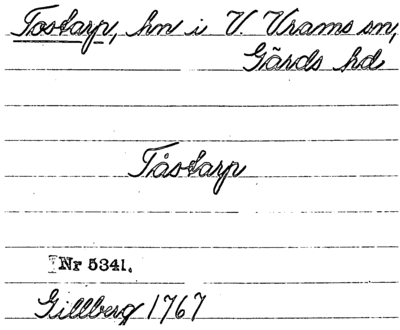 Tostarp, hn i V. Vrams sn,
Gärds hd
Tåstarp
Nr 5341.
Gillberg 1767